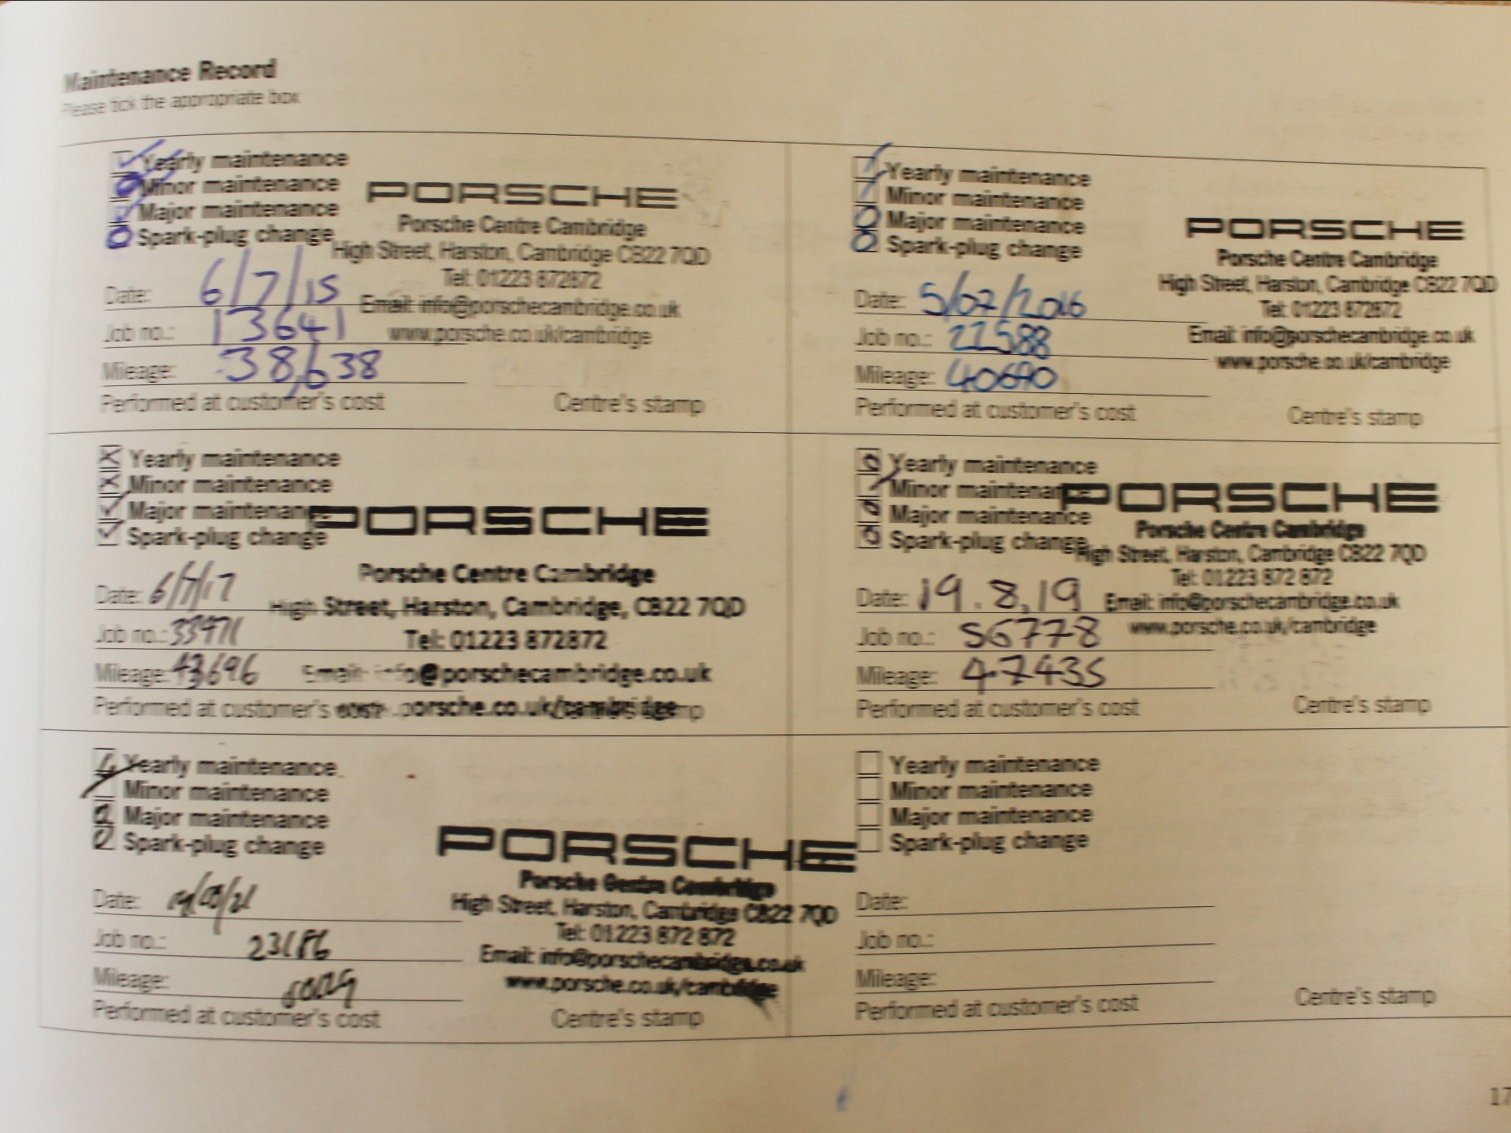 Maintenance Record
Please tick the appropriate box
Yearly maintenance
Minor maintenance
Major maintenance
Spark-plug change
PORSCHE
Porsche Centre Cambridge
High Street, Harston, Cambridge CB22 7QD
Tel: 01223 872872
Email: info@porschecambridge.co.uk
www.porsche.co.uk/cambridge
Date: 6/7/15
Job no.: 13641
Mileage: 38,638
Performed at customer's cost
Centre's stamp
Yearly maintenance
Minor maintenance
Major maintenance
Spark-plug change
PORSCHE
Porsche Centre Cambridge
High Street, Harston, Cambridge CB22 7QD
Tel: 01223 872872
Email: info@porschecambridge.co.uk
www.porsche.co.uk/cambridge
Date: 5/07/2016
Job no.: 22588
Mileage: 40690
Performed at customer's cost
Centre's stamp
Yearly maintenance
Minor maintenance
Major maintenance
Spark-plug change
PORSCHE
Porsche Centre Cambridge
High Street, Harston, Cambridge, CB22 7QD
Tel: 01223 872872
Email: info@porschecambridge.co.uk
.porsche.co.uk/cambridge
Date: 6/7/17
Job no.: 33971
Mileage: 43696
Performed at customer's cost
Yearly maintenance
Minor maintenance
Major maintenance
Spark-plug change
PORSCHE
Porsche Centre Cambridge
High Street, Harston, Cambridge CB22 7QD
Tel: 01223 872 872
Email: info@porschecambridge.co.uk
www.porsche.co.uk/cambridge
Date: 19.8.19
Job no.: 56778
Mileage: 47435
Performed at customer's cost
Centre's stamp
Yearly maintenance
Minor maintenance
Major maintenance
Spark-plug change
PORSCHE
Porsche Centre Cambridge
High Street, Harston, Cambridge CB22 7QD
Tel: 01223 872 872
Email: info@porschecambridge.co.uk
www.porsche.co.uk/cambridge
Date:
Job no.: 23186
Mileage:
Performed at customer's cost
Centre's stamp
Yearly maintenance
Minor maintenance
Major maintenance
Spark-plug change
Date:
Job no.:
Mileage:
Performed at customer's cost
Centre's stamp
17